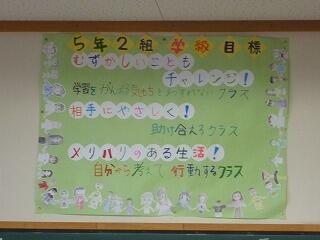 5年2組 学級目標
むずかしいことも
チャレンジ!
学習をがんばる気もちをわすれないクラス
相手にやさしく!
助け合えるクラス
メリハリのある生活!
自分から考えて行動するクラス